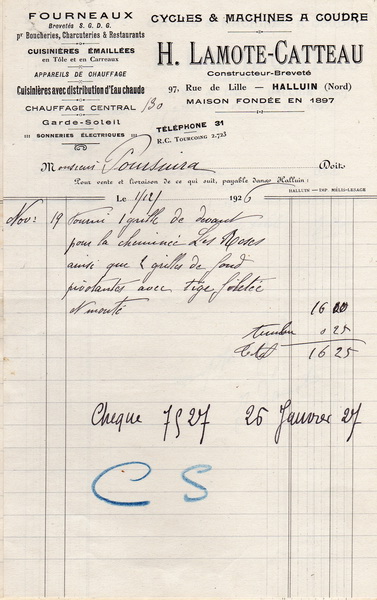 FOURNEAUX
Brevetés S. G. D. G.
pr Boucheries, Charcuteries & Restaurants
CUISINIÈRES ÉMAILLÉES
en Tôle et en Carreaux
APPAREILS DE CHAUFFAGE
Cuisinières avec distribution d'Eau chaude
CHAUFFAGE CENTRAL
Garde-Soleil
SONNERIES ÉLECTRIQUES
130
CYCLES & MACHINES A COUDRE
H. LAMOTE-CATTEAU
Constructeur-Breveté
97, Rue de Lille — HALLUIN (Nord)
MAISON FONDÉE EN 1897
TÉLÉPHONE 31
R.C. TOURCOING 2.723
Monsieur Doit
Pour vente et livraison de ce qui suit, payable dans Halluin:
HALLUIN — IMP. MÉLIS-LESAGE
Le 1/12/ 1926
Nov: 19 Fourni 1 grille de devant
pour la cheminée Les Roses
ainsi que 2 grilles de fond
pivotantes avec tige filetée
et monté 16 00
timbre 0 25
Total 16 25
Cheque 7527 26 Janvier 27
C S